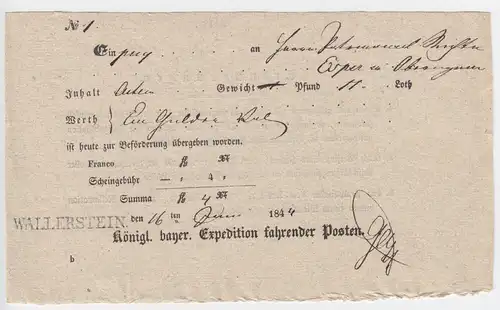 № 1.
Ein an Herrn
Inhalt Acten Gewicht Pfund 11. Loth
Werth } Ein Gulden
ist heute zur Beförderung übergeben worden.
Franco fl xr
Scheingebühr — „ 4 „
Summa fl 4 xr
WALLERSTEIN. den 16 ten Juni 1844
Königl. bayer. Expedition fahrender Posten.
b